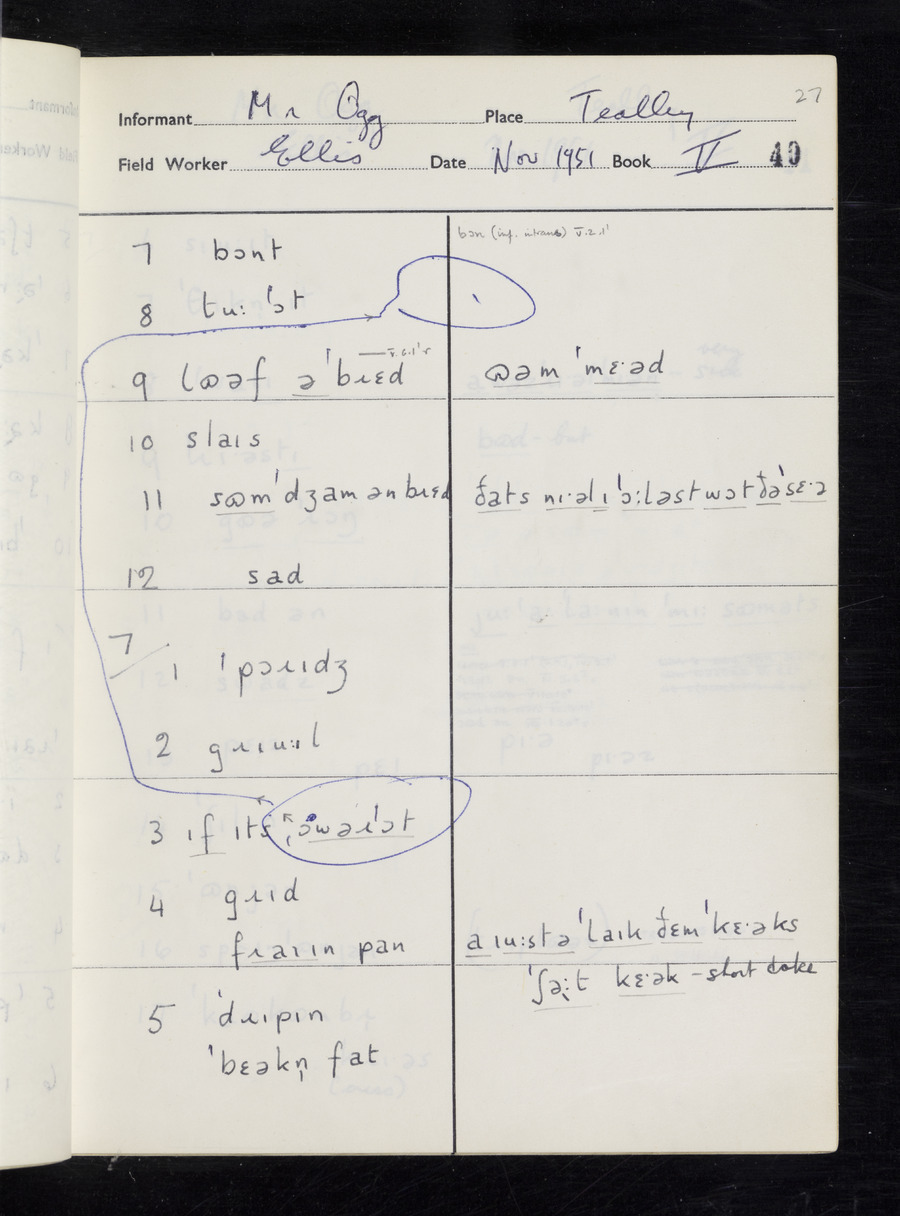 27
Informant Mr Ogg Place Tealby
Field Worker Ellis Date Nov 1951 Book V 40
7 bɔnt
bɔn (inf. intrans) V.2.1'
8 tuː 'ɔt
9 lɷəf ə'bɹɛd
ɷəm 'mɛ·əd
10 slaɪs
11 sɷm'dʒam ən bɹɛd
ðats nɪ·əlɪ 'ɔːləst wɔt ðə'sɛ·ə
12 sad
7
1 'pɔɹɪdʒ
2 gɹɪuːɪl
3 ɪf ɪts
4 gɹɪd
fɹaɪɪn pan
a ɹuːstə 'laɪk ðɛm 'kɛ·əks
'ʃəːt kɛ·ək - short cake
5 'dɹɪpɪn
'bɛəkn̩ fat